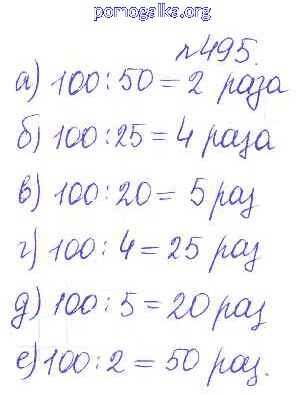 pomogalka.org
№495.
а) 100:50=2 раза
б) 100:25=4 раза
в) 100:20= 5 раз
г) 100:4=25 раз
д) 100:5=20 раз
е) 100:2=50 раз.